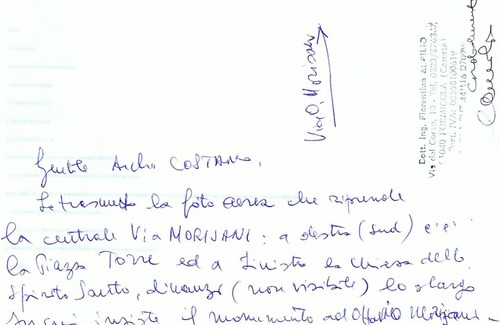 Via O. Morisani
Dott. Ing. Fiorentino
Via del Corso, 10 - Tel.
FORMICOLA (Caserta)
Part. IVA
Cordialmente
Gentile Archo COSTANZO,
Le trasmetto la foto aerea che riprende
la centrale Via MORISANI: a destra (sud) c'è
la Piazza Torre ed a sinistra la chiesa dello
Spirito Santo, dinanzi (non visibile) lo slargo
su cui insiste il monumento ad Ottavio Morisani -